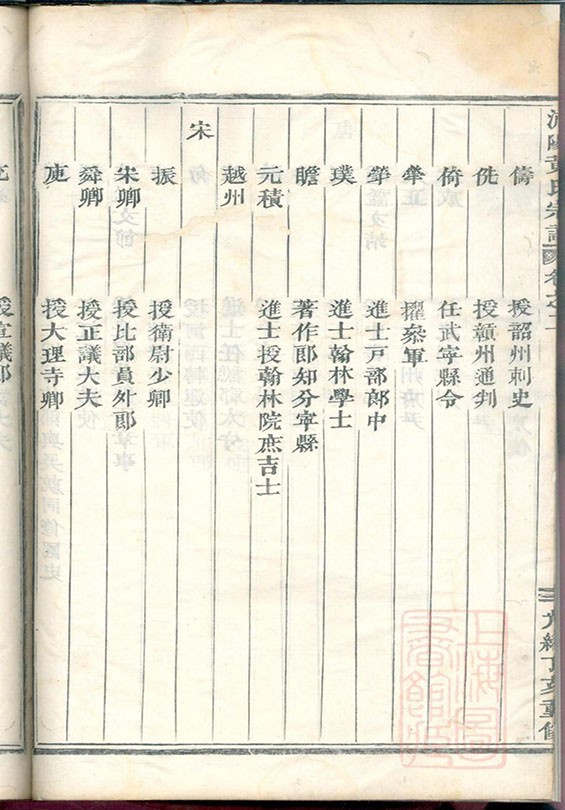 黃氏宗譜 卷之一
二 光緒丁亥重修
儔 授韶州刺史
侁 授贛州通判
倚 任武寧縣令
犖 擢叅軍
華 進士戸部郎中
璞 進士翰林學士
瞻 著作郎知分寧縣
元積 進士授翰林院庶吉士
越州
宋
振 授衛尉少卿
宋卿 授比部員外郎
舜卿 授正議大夫
庾 授大理寺卿
授宣議郎
上海圖書館藏